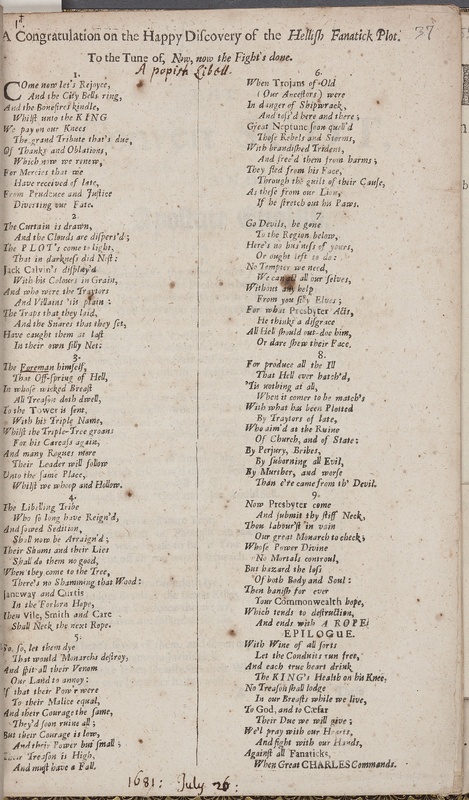 1st.
37
A Congratulation on the Happy Discovery of the Hellish Fanatick Plot.
To the Tune of, Now, now the Fight's done.
A popish Libell.
1.
COme now let's Rejoyce,
And the City Bells ring,
And the Bonefires kindle,
Whilst unto the KING
We pay on our Knees
The grand Tribute that's due,
Of Thanks and Oblations,
Which now we renew,
For Mercies that we
Have received of late,
From Prudence and Justice
Diverting our Fate.
2.
The Curtain is drawn,
And the Clouds are dispers'd;
The PLOT's come to light,
That in darkness did Nest:
Jack Calvin's display'd
With his Colours in Grain,
And who were the Traytors
And Villains 'tis plain:
The Traps that they laid,
And the Snares that they set,
Have caught them at last
In their own silly Net:
3.
The Foreman himself,
That Off-spring of Hell,
In whose wicked Breast
All Treason doth dwell,
To the Tower is sent,
With his Triple Name,
Whilst the Triple-Tree groans
For his Carcass again,
And many Rogues more
Their Leader will follow
Unto the same Place,
Whilst we whoop and Hollow.
4.
The Libelling Tribe
Who so long have Reign'd,
And sowed Sedition,
Shall now be Arraign'd;
Their Shams and their Lies
Shall do them no good,
When they come to the Tree,
There's no Shamming that Wood:
Janeway and Curtis
In the Forlorn Hope,
Then Vile, Smith and Care
Shall Neck the next Rope.
5.
So, so, let them dye
That would Monarchs destroy,
And spit all their Venom
Our Land to annoy:
If that their Pow'r were
To their Malice equal,
And their Courage the same,
They'd soon ruine all;
But their Courage is low,
And their Power but small;
Their Treason is High,
And must have a Fall.
6.
When Trojans of Old
(Our Ancestors) were
In danger of Shipwrack,
And toss'd here and there;
Great Neptune soon quell'd
Those Rebels and Storms,
With brandished Trident,
And free'd them from harms;
They fled from his Face,
Through the guilt of their Cause,
As these from our Lion,
If he stretch out his Paws.
7.
Go Devils, be gone
To the Region below,
Here's no bus'ness of yours,
Or ought left to do:
No Tempter we need,
We can all our selves,
Without any help
From you silly Elves;
For what Presbyter Acts,
He thinks a disgrace
All Hell should out-doe him,
Or dare shew their Face.
8.
For produce all the Ill
That Hell ever hatch'd,
'Tis nothing at all,
When it comes to be match'd
With what has been Plotted
By Traytors of late,
Who aim'd at the Ruine
Of Church, and of State:
By Perjury, Bribes,
By suborning all Evil,
By Murther, and worse
Than e're came from th' Devil.
9.
Now Presbyter come
And submit thy stiff Neck,
Thou labour'st in vain
Our great Monarch to check;
Whose Power Divine
No Mortals controul,
But hazard the loss
Of both Body and Soul:
Then banish for ever
Your Commonwealth hope,
Which tends to destruction,
And ends with A ROPE!
EPILOGUE.
With Wine of all sorts
Let the Conduits run free,
And each true heart drink
The KING's Health on his Knee.
No Treason shall lodge
In our Breasts while we live,
To God, and to Cæsar
Their Due we will give;
We'l pray with our Hearts,
And fight with our Hands,
Against all Fanaticks,
When Great CHARLES Commands.
1681: July 26: